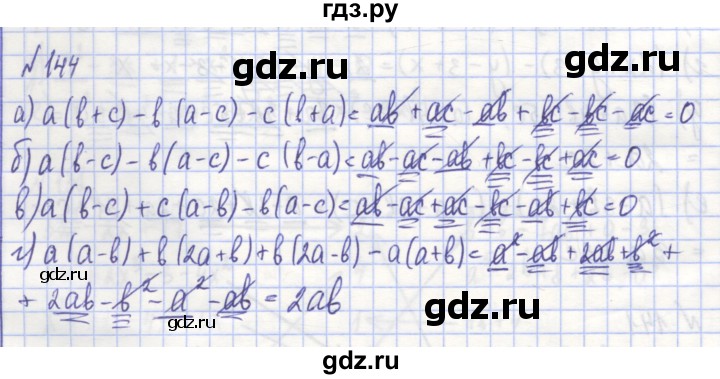 гдз.ру
№ 144
gdz.ru
gdz.ru
а) a(b+c) - b(a-c) - c(b+a) = ab + ac - ab + bc - bc - ac = 0
б) a(b-c) - b(a-c) - c(b-a) = ab - ac - ab + bc - bc + ac = 0
в) a(b-c) + c(a-b) - b(a-c) = ab - ac + ac - bc - ab + bc = 0
г) a(a-b) + b(2a+b) + b(2a-b) - a(a+b) = a² - ab + 2ab + b² +
+ 2ab - b² - a² - ab = 2ab
gdz.ru
gdz.ru
gdz.ru